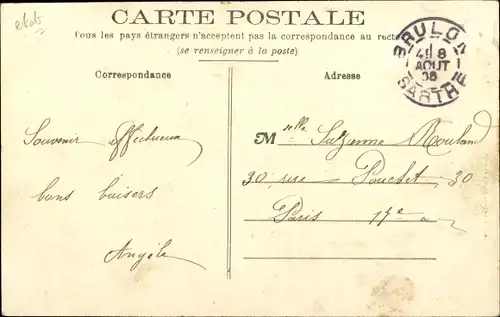 etab
CARTE POSTALE
Tous les pays étrangers n'acceptent pas la correspondance au recto
(se renseigner à la poste)
BRULON
4E 8
AOUT
08
SARTHE
Correspondance
Adresse
Souvenir affectueux
bons baisers
Angèle
Melle Suzanne Rouland
30, rue Pouchet, 30
Paris 17e